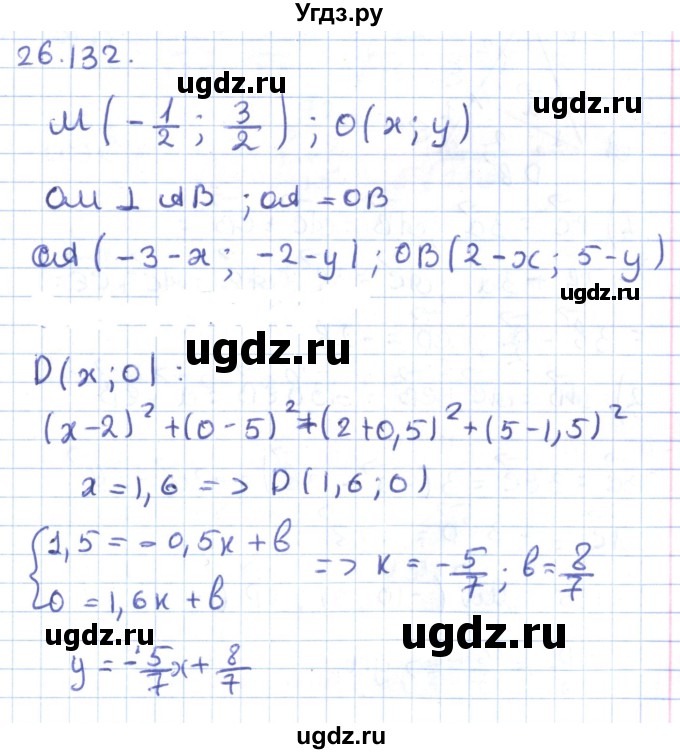 Угдз.ру
26.132.
ugdz.ru
M(-1/2; 3/2); O(x; y)
OM ⊥ AB; OA = OB
OA(-3-x; -2-y); OB(2-x; 5-y)
ugdz.ru
ugdz.ru
D(x; 0):
(x-2)² + (0-5)² + (2+0,5)² + (5-1,5)²
x = 1,6 => D(1,6; 0)
{1,5 = -0,5k + b
0 = 1,6k + b
=> k = -5/7; b = 8/7
ugdz.ru
ugdz.ru
y = -5/7x + 8/7
ugdz.ru